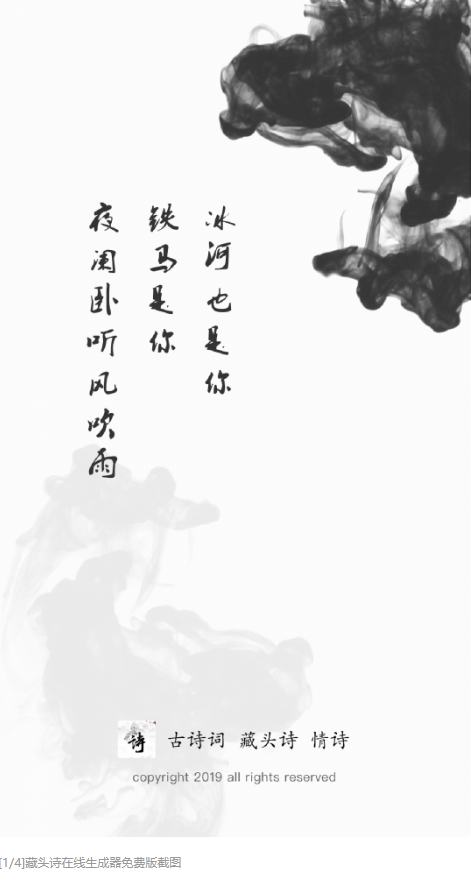 夜阑卧听风吹雨
铁马是你
冰河也是你
诗
古诗词 藏头诗 情诗
copyright 2019 all rights reserved
[1/4]藏头诗在线生成器免费版截图